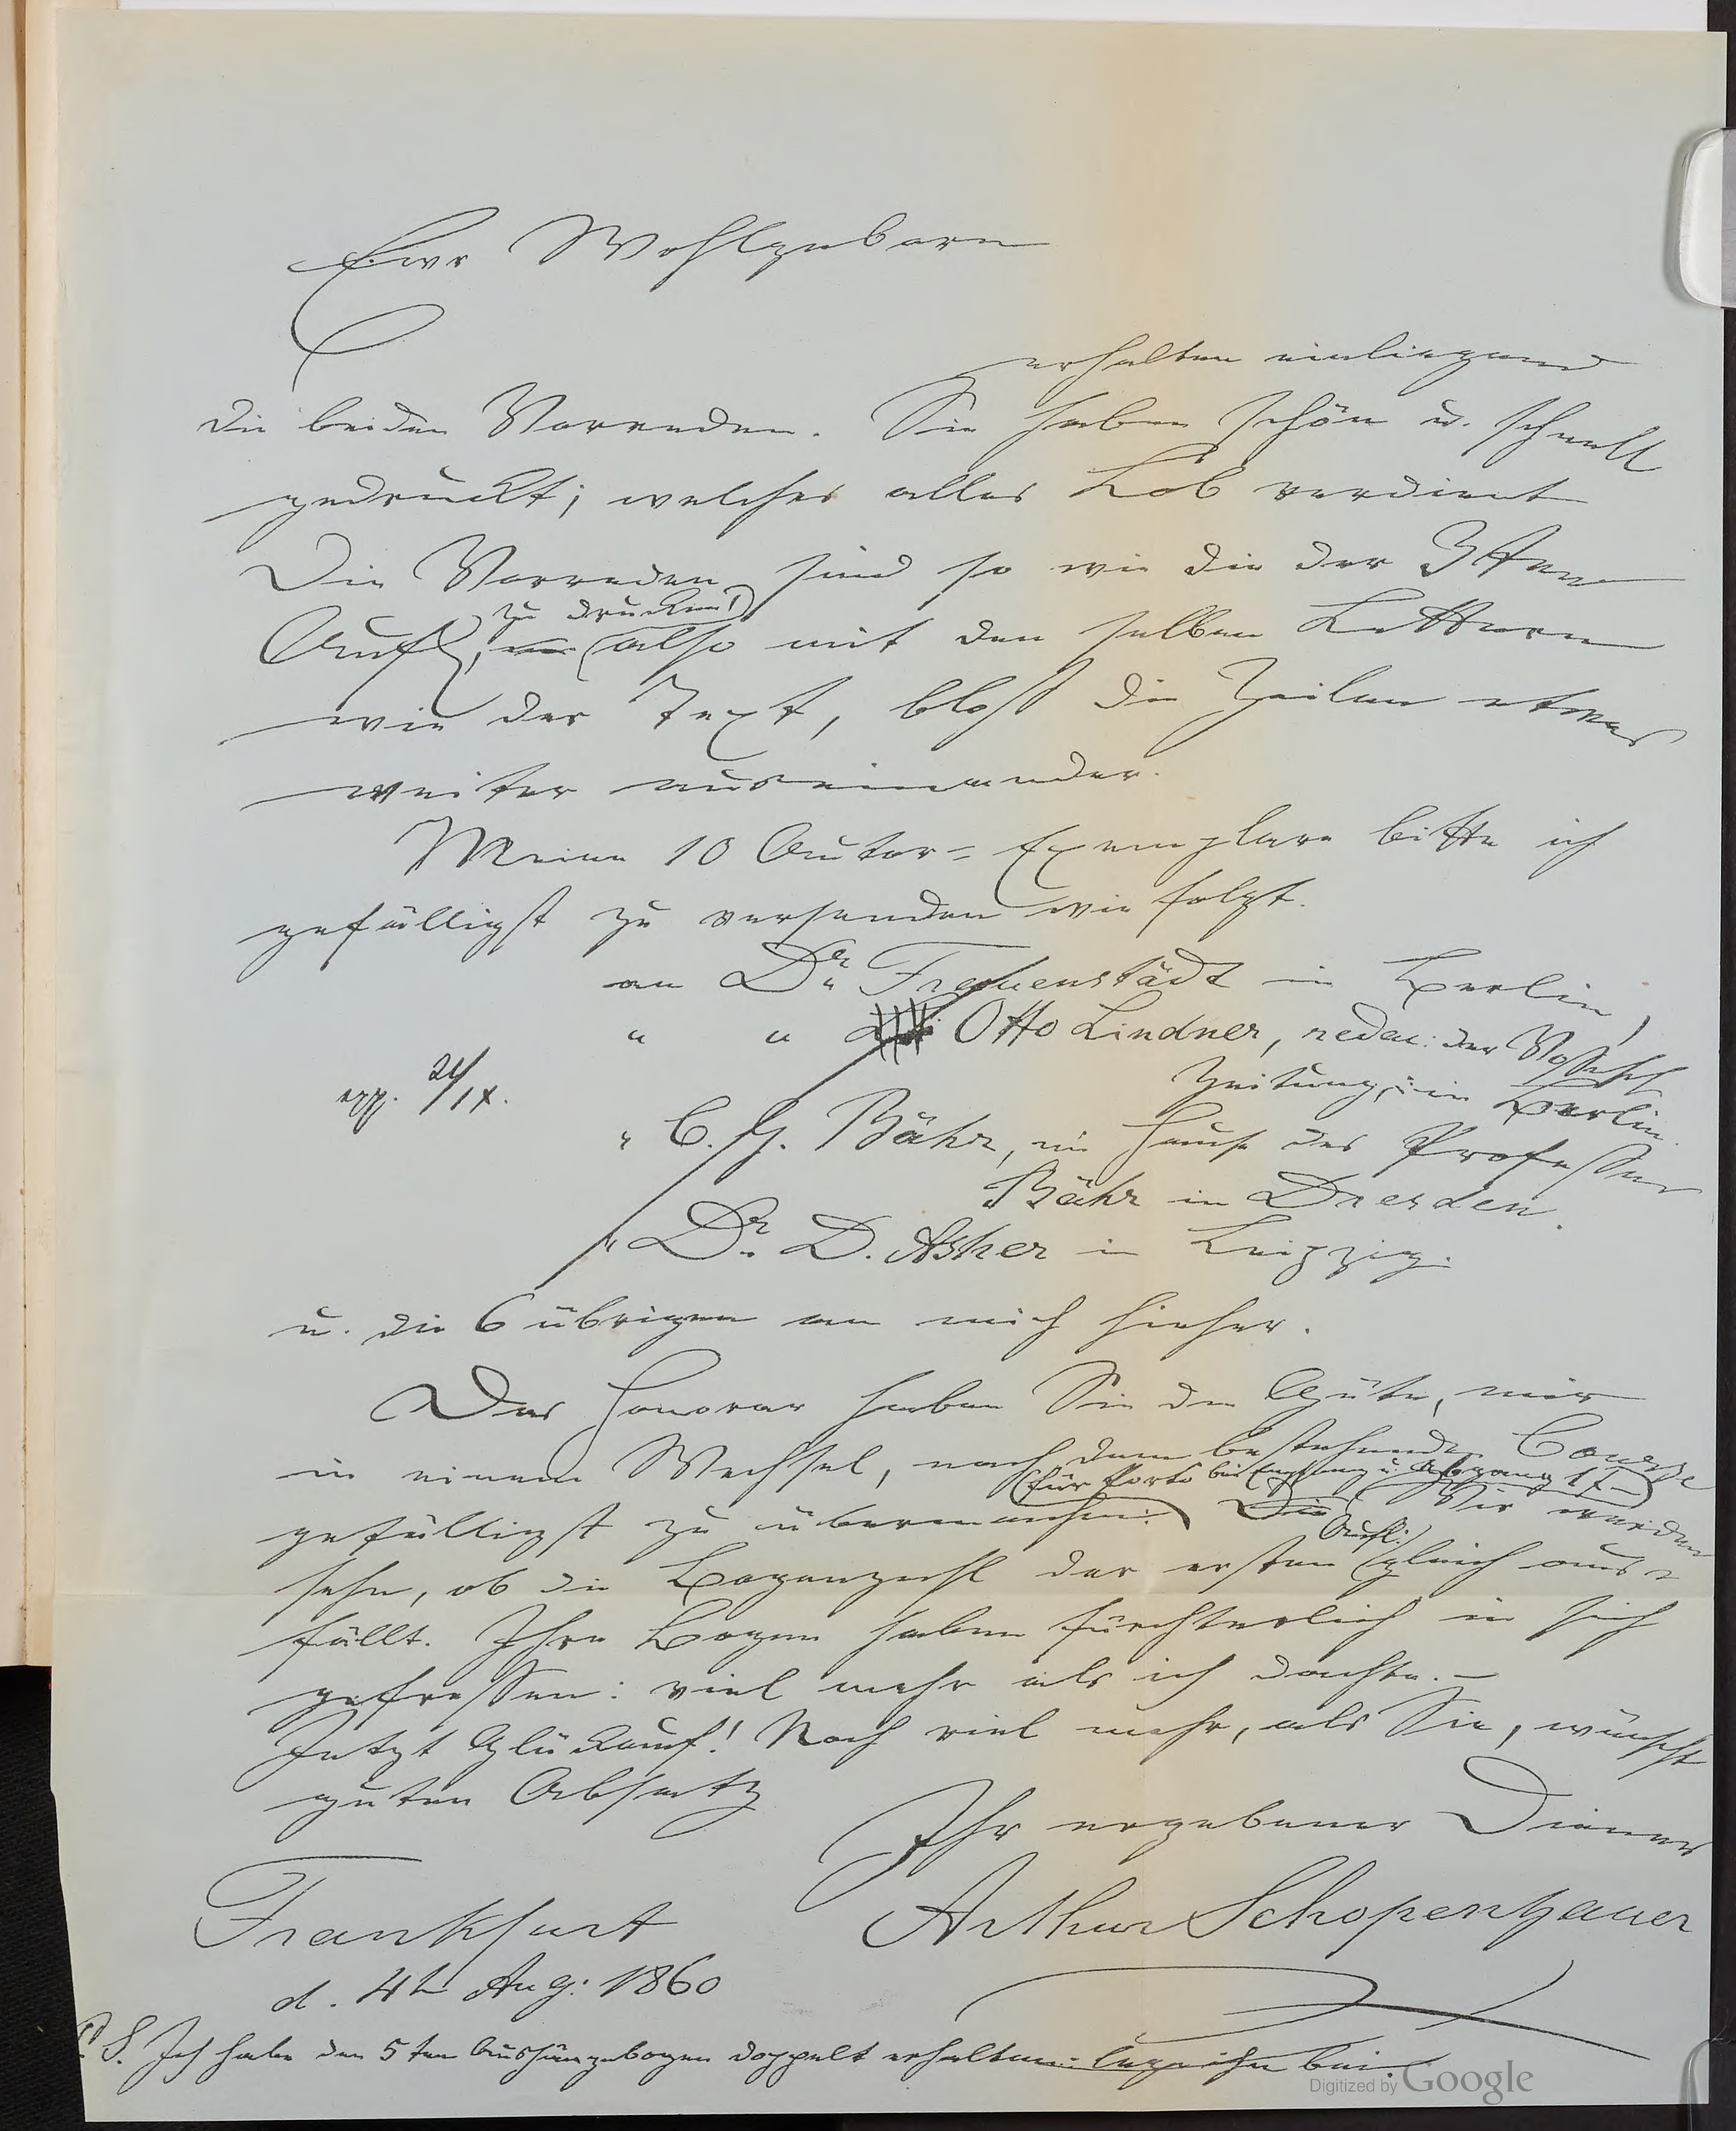 Ewr Wohlgeborn
erhalten einliegend
die beiden Vorreden. Sie haben schön u. schnell
gedruckt; welches alles Lob verdient
Die Vorreden sind so wie die der 2ten
zu drucken!
Aufl, (also mit den selben Lettern
wie der Text, bloß die Zeilen etwas
weiter auseinander.
Meine 10 Autor-Exemplare bitte ich
gefälligst zu versenden wie folgt.
an Dr. Frauenstädt in Berlin,
" " Otto Lindner, redac: der Vossisch
Zeitung, in Berlin.
24/IX.
" C. G. Bähr, im Hause des Professor
Bähr in Dresden.
" Dr. D. Asher in Leipzig.
u. die 6 übrigen an mich hieher.
Das Honorar haben Sie die Güte, mir
in einem Wechsel, nach dem bestehenden Course
(für Porto bei Empfang u. Abgang
gefälligst zu übermachen. Wir werden
Aufl:
sehn, ob die Bogenzahl der ersten gleich aus-
fällt. Ihre Bogen haben fürchterlich in sich
gefressen: viel mehr als ich dachte. –
Jetzt Glückauf! Noch viel mehr, als Sie, wünscht
guten Absatz
Ihr ergebener Diener
Frankfurt Arthur Schopenhauer
d. 4t Aug: 1860
P.S. Ich habe den 5ten Aushängebogen doppelt erhalten: lege ihn bei.
Digitized by Google